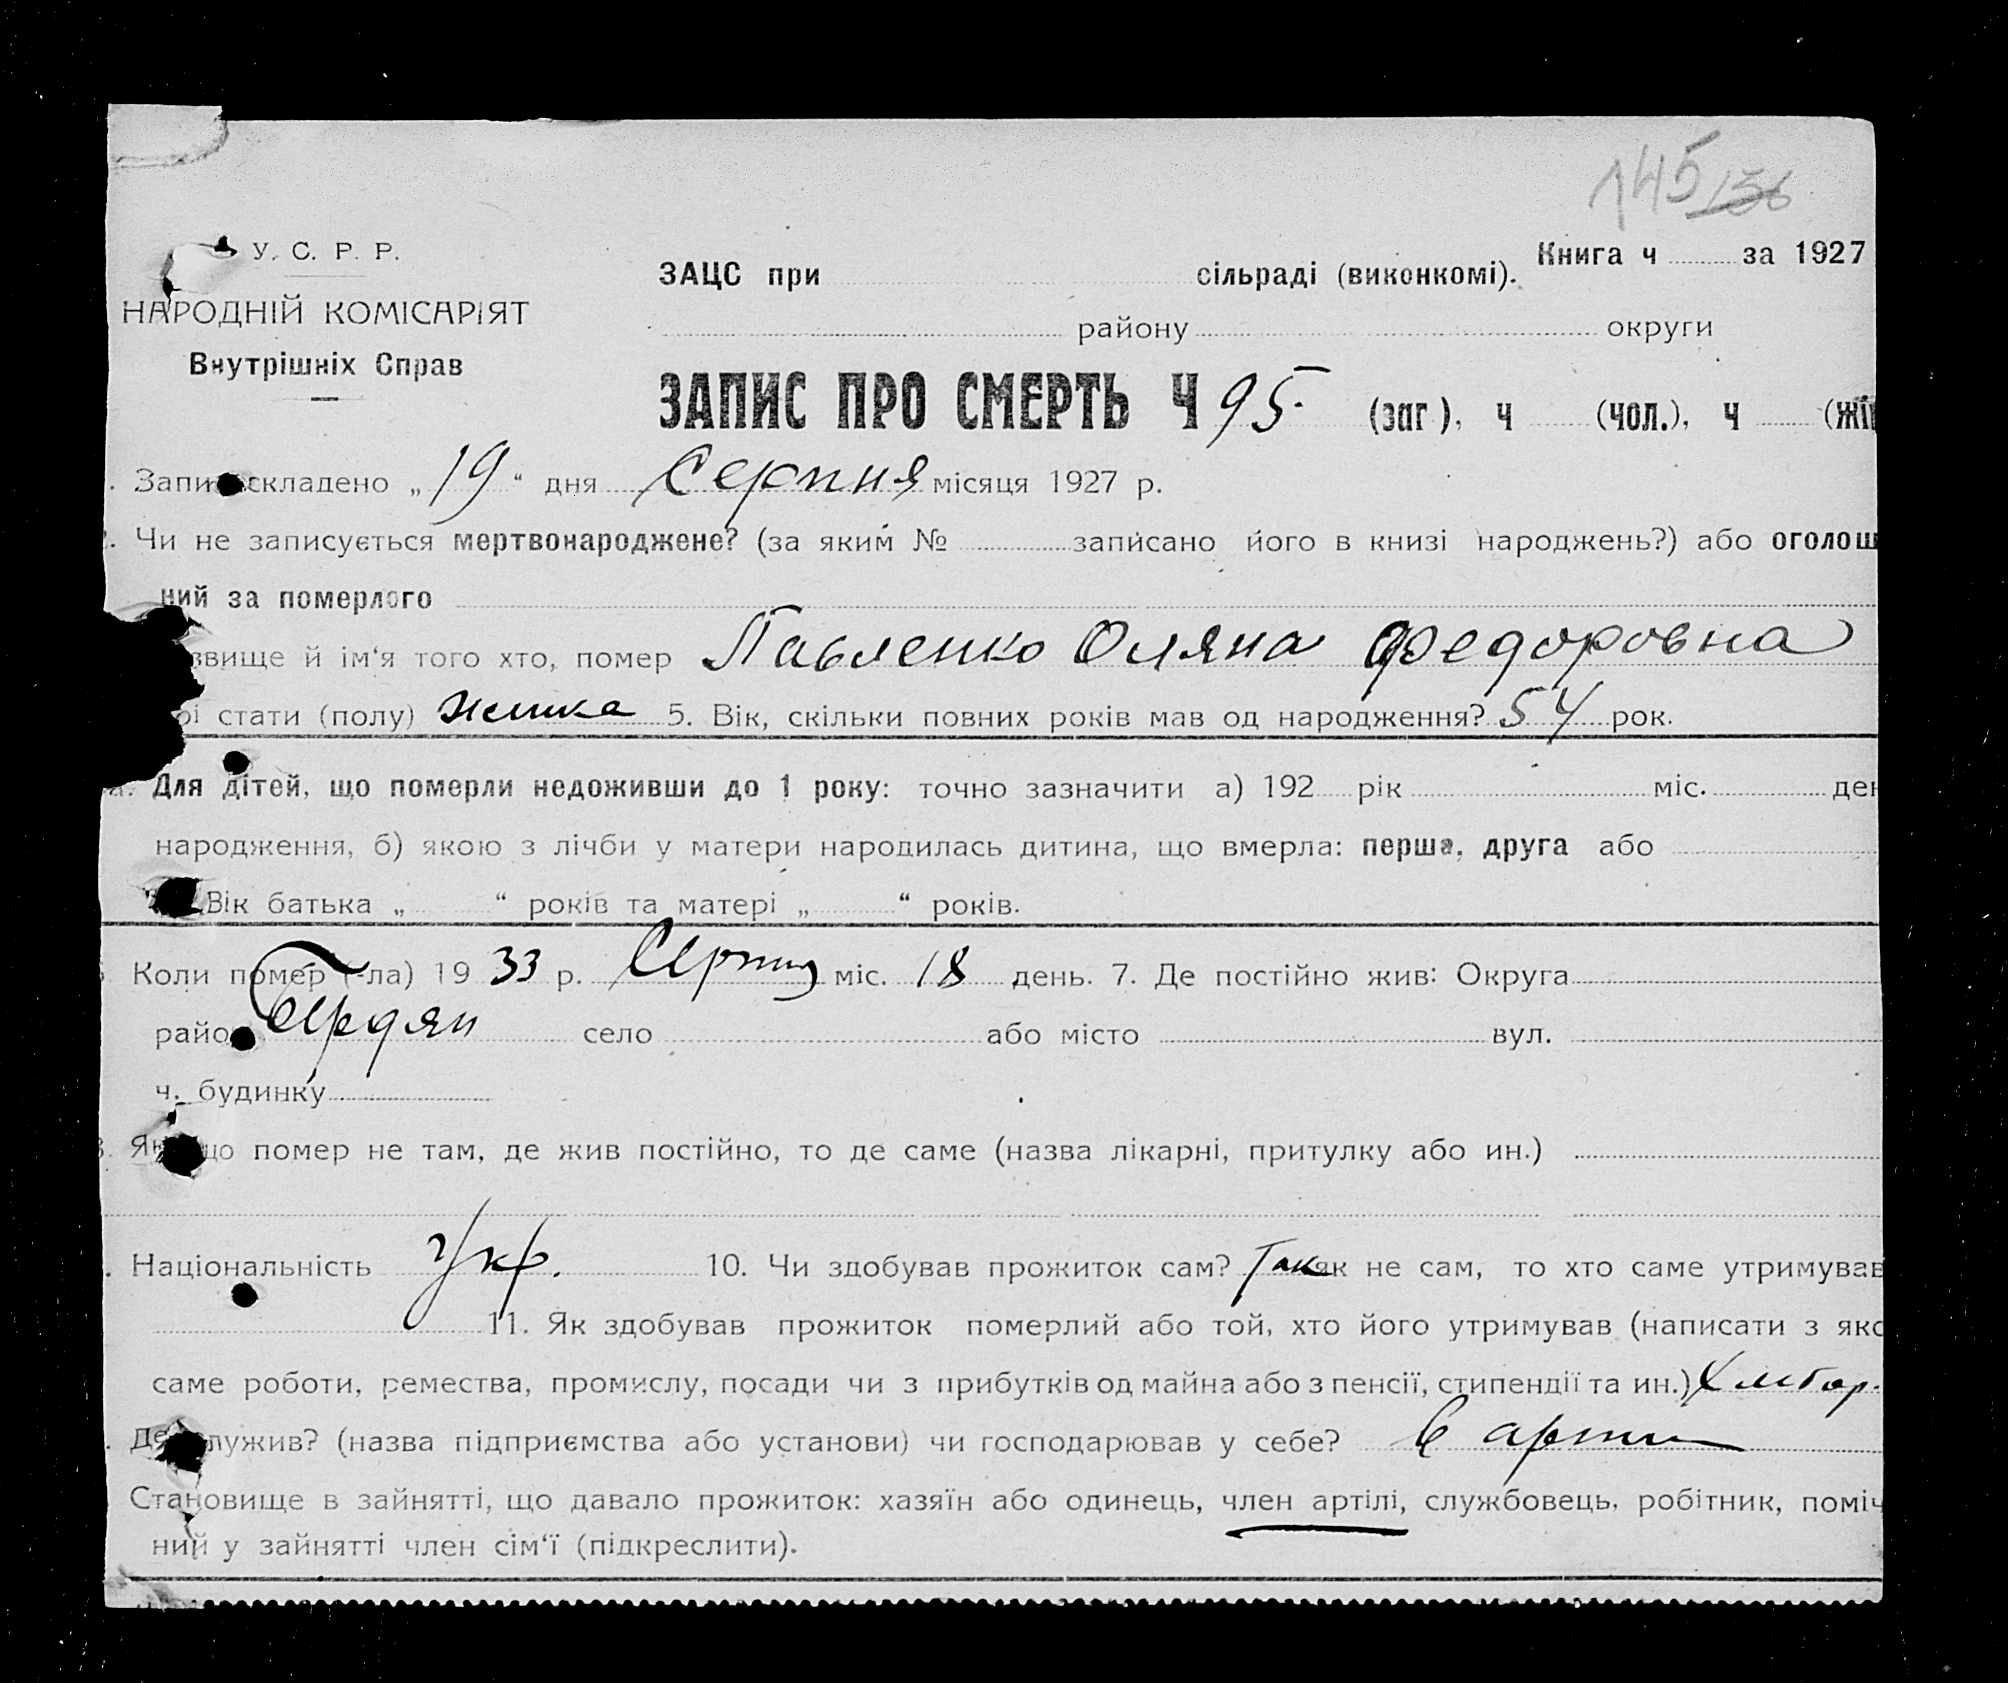 145 136
У. С. Р. Р.
Книга ч за 1927
ЗАЦС при сільраді (виконкомі).
НАРОДНІЙ КОМІСАРІЯТ
району округи
Внутрішніх Справ
ЗАПИС ПРО СМЕРТЬ Ч 95. (заг), ч (чол.), ч (жін
Запис складено „19“ дня Серпня місяця 1927 р.
Чи не записується мертвонароджене? (за яким № записано його в книзі народжень?) або оголош
ний за померлого
звище й ім‘я того хто, помер Павленко Оляна Федоровна
рі стати (полу) жінка 5. Вік, скільки повних років мав од народження? 54 рок.
а. Для дітей, що померли недоживши до 1 року: точно зазначити а) 192 рік міс. ден
народження, б) якою з лічби у матери народилась дитина, що вмерла: перша, друга або
Вік батька „ “ років та матері „ “ років.
Коли помер (-ла) 1933 р. Серпня міс. 18 день. 7. Де постійно жив: Округа
райо Бердян село або місто вул.
ч. будинку
Якщо помер не там, де жив постійно, то де саме (назва лікарні, притулку або ин.)
Національність Укр. 10. Чи здобував прожиток сам? Так як не сам, то хто саме утримував
11. Як здобував прожиток померлий або той, хто його утримував (написати з яко
саме роботи, ремества, промислу, посади чи з прибутків од майна або з пенсії, стипендії та ин.)
Де служив? (назва підприємства або установи) чи господарював у себе? в арт
Становище в зайнятті, що давало прожиток: хазяїн або одинець, член артілі, службовець, робітник, поміч
ний у зайнятті член сім‘ї (підкреслити).